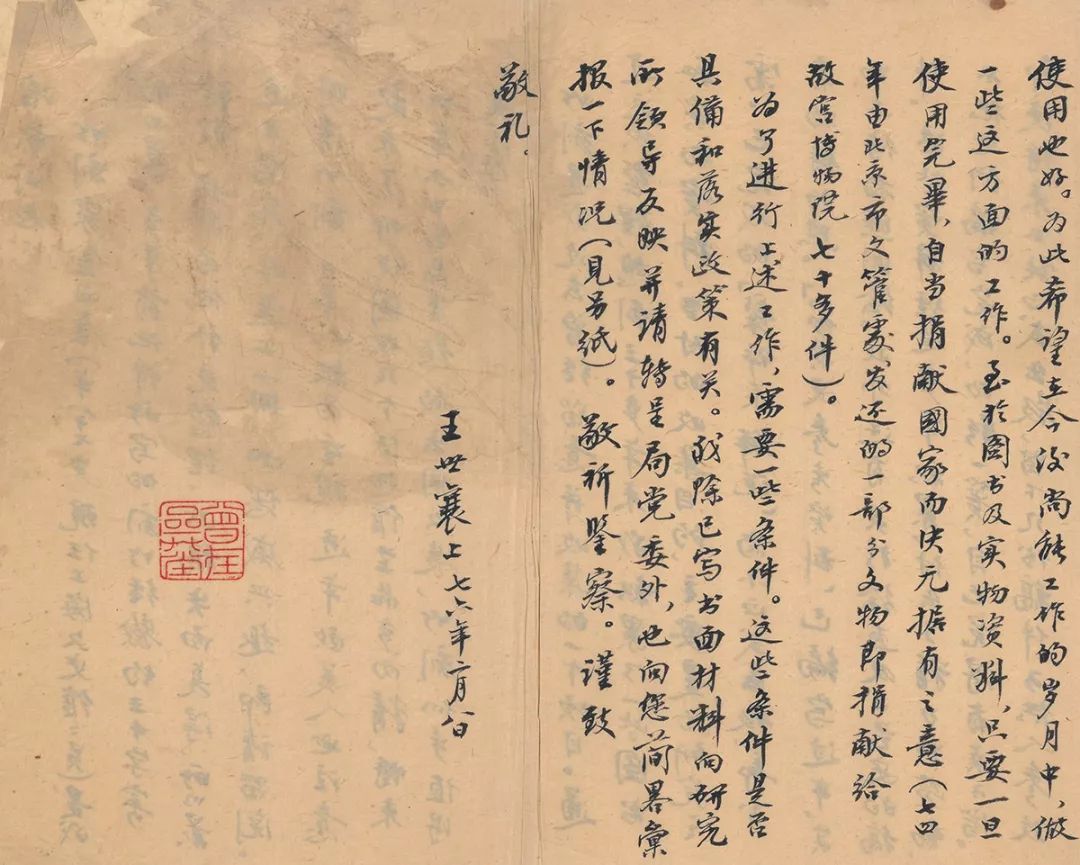 使用也好。为此希望在今后尚能工作的岁月中，做
一些这方面的工作。至於图书及实物资料，只要一旦
使用完畢，自当捐献國家而决无据有之意（七四
年由北京市文管處发还的一部分文物即捐献给
故宫博物院七十多件）。
为了进行上述工作，需要一些条件。这些条件是否
具備和落实政策有关。我除已写书面材料向研究
所领导反映并请转呈局党委外，也向您简畧彙
报一下情况（见另纸）。敬祈鉴察。谨致
敬礼。
王世襄上 七六年二月八日